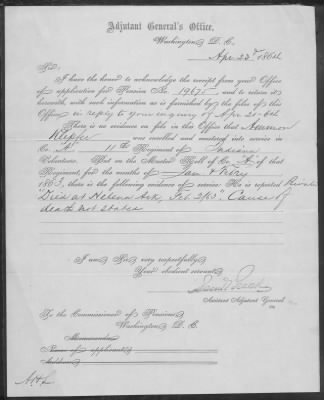 Adjutant General's Office,
Washington, D. C.
Apr. 23d 1864
Sir:
I have the honor to acknowledge the receipt from your Office
of application for Pension No. 19675 and to return it
herewith, with such information as is furnished by the files of this
Office, in reply to your inquiry of Apr 20-64
There is no evidence on file in this Office that
was enrolled and mustered into service in
Co. "A", 11th Regiment of Indiana
Volunteers. But on the Muster Roll of Co. "A" of that
Regiment, for the months of Jan & Feby
1863, there is the following evidence of service: He is reported Private
"Died at Helena Ark, Feb. 2/63". Cause of
death not stated
I am Sir, very respectfully,
Your obedient servant,
Assistant Adjutant General
To the Commissioner of Pensions
Washington D. C.
Memoranda:
Name of applicant
Address